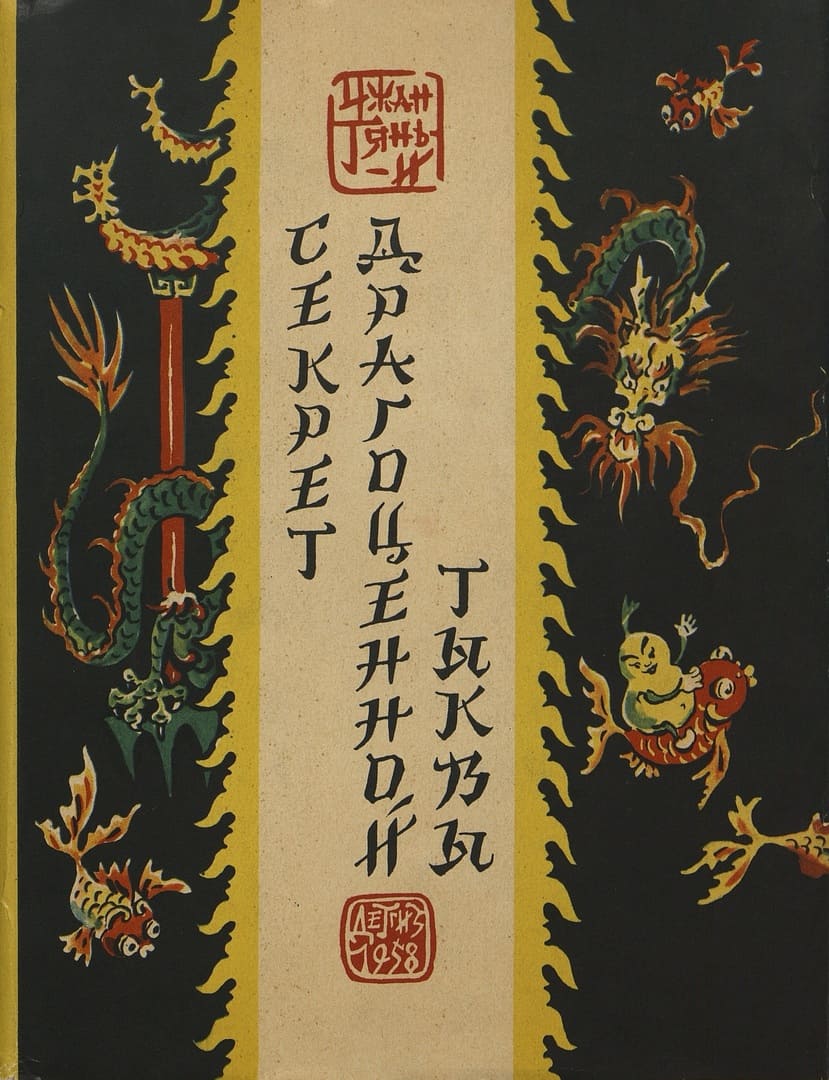 ДЖАН
ТЯНЬ
-И
СЕКРЕТ
ДРАГОЦЕННОЙ
ТЫКВЫ
ДЕТГИЗ
1958